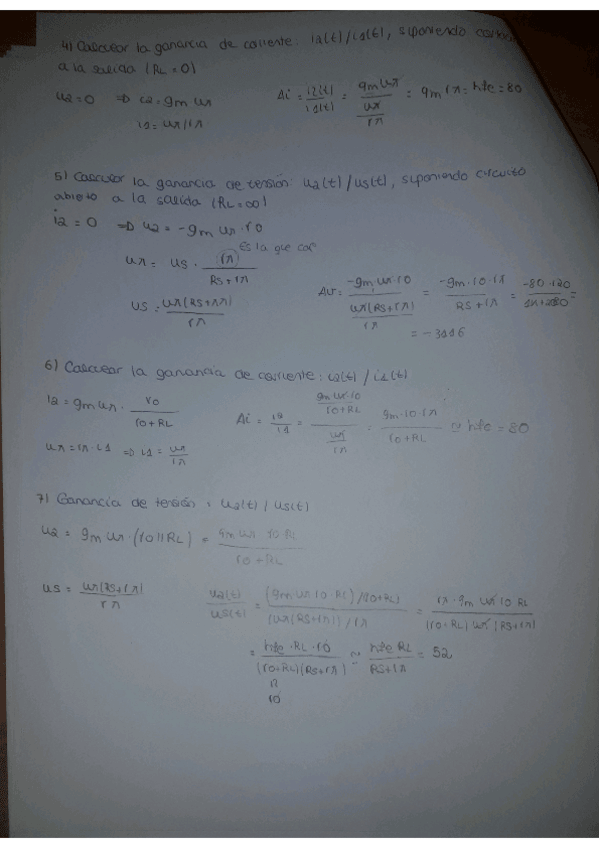 4) Calcular la ganancia de corriente: i2(t)/i1(t), suponiendo
a la salida (RL=0)
u2=0 ⇒ i2=gm uπ Ai = i2(t)/i1(t) = gm uπ / (uπ/rπ) = gm rπ = hfe = 80
i1= uπ/rπ
5) Calcular la ganancia de tensión u2(t)/us(t), suponiendo circuito
abierto a la salida (RL=∞)
i2=0 ⇒ u2 = -gm uπ · r0
Es la que
uπ = us · rπ/(Rs+rπ)
us = uπ(Rs+rπ)/rπ Av = -gm uπ r0 / (uπ(Rs+rπ)/rπ) = -gm·r0·rπ/(Rs+rπ) =
= -3116
6) Calcular la ganancia de corriente: i2(t)/i1(t)
i2 = gm uπ · r0/(r0+RL) Ai = i2/i1 = (gm uπ r0/(r0+RL)) / (uπ/rπ) = gm·r0·rπ/(r0+RL) ≃ hfe = 80
uπ = rπ·i1 ⇒ i1 = uπ/rπ
7) Ganancia de tensión: u2(t)/us(t)
u2 = gm uπ·(r0||RL) = gm uπ r0 RL/(r0+RL)
us = uπ(Rs+rπ)/rπ u2(t)/us(t) = (gm uπ r0·RL)/(r0+RL) / (uπ(Rs+rπ))/rπ = rπ·gm uπ r0 RL/((r0+RL) uπ (Rs+rπ))
= hfe·RL·r0/((r0+RL)(Rs+rπ)) ≃ hfe RL/(Rs+rπ) = 52
r0